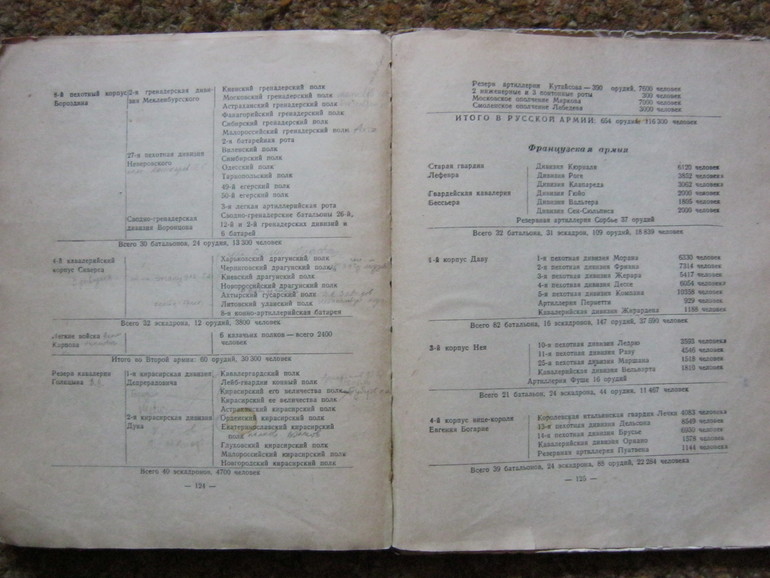 8-й пехотный корпус
Бороздина
2-я гренадерская диви-
зия Мекленбургского
Киевский гренадерский полк
Московский гренадерский полк
Астраханский гренадерский полк
Фанагорийский гренадерский полк
Сибирский гренадерский полк
Малороссийский гренадерский полк
2-я батарейная рота
27-я пехотная дивизия
Неверовского
Виленский полк
Симбирский полк
Одесский полк
Тарнопольский полк
49-й егерский полк
50-й егерский полк
Сводно-гренадерская
дивизия Воронцова
3-я легкая артиллерийская рота
Сводно-гренадерские батальоны 26-й,
12-й и 2-й гренадерских дивизий и
6 батарей
Всего 30 батальонов, 24 орудия, 13 300 человек
4-й кавалерийский
корпус Сиверса
Харьковский драгунский полк
Черниговский драгунский полк
Киевский драгунский полк
Новороссийский драгунский полк
Ахтырский гусарский полк
Литовский уланский полк
8-я конно-артиллерийская батарея
Всего 32 эскадрона, 12 орудий, 3800 человек
Легкие войска
Карпова
6 казачьих полков — всего 2400
человек
Итого во Второй армии: 60 орудий, 30 300 человек
Резерв кавалерии
Голицына
1-я кирасирская дивизия
Депрерадовича
Кавалергардский полк
Лейб-гвардии конный полк
Кирасирский его величества полк
Кирасирский ее величества полк
Астраханский кирасирский полк
2-я кирасирская дивизия
Дука
Орденский кирасирский полк
Екатеринославский кирасирский
полк
Глуховский кирасирский полк
Малороссийский кирасирский полк
Новгородский кирасирский полк
Всего 40 эскадронов, 4700 человек
— 124 —
Резерв артиллерии Кутайсова — 300 орудий, 7600 человек
2 инженерных и 3 понтонные роты 300 человек
Московское ополчение Маркова 7000 человек
Смоленское ополчение Лебедева 3000 человек
ИТОГО В РУССКОЙ АРМИИ, 654 орудия, 116 300 человек
Французская армия
Старая гвардия
Лефевра
Дивизия Кюриаля 6120 человек
Дивизия Роге 3852 человек
Дивизия Клапареда 3062 человек
Гвардейская кавалерия
Бессьера
Дивизия Гюйо 2000 человек
Дивизия Вальтера 1805 человек
Дивизия Сен-Сюльписа 2000 человек
Резервная артиллерия Сорбье 37 орудий
Всего 32 батальона, 31 эскадрон, 109 орудий, 18 839 человек
1-й корпус Даву
1-я пехотная дивизия Морана 6330 человек
2-я пехотная дивизия Фриана 7314 человек
3-я пехотная дивизия Жерара 5417 человек
4-я пехотная дивизия Дессе 6054 человек
5-я пехотная дивизия Компана 10358 человек
Артиллерия Пернетти 929 человек
Кавалерийская дивизия Жирардена 1188 человек
Всего 62 батальона, 16 эскадронов, 147 орудий, 37 590 человек
3-й корпус Нея
10-я пехотная дивизия Ледрю человек
11-я пехотная дивизия Разу 4546 человек
25-я пехотная дивизия Маршана человек
Кавалерийская дивизия 1810 человек
Артиллерия Фуше 16 орудий
Всего 21 батальон, 24 эскадрона, 44 орудия, 11 467 человек
4-й корпус вице-короля
Евгения Богарне
Королевская итальянская гвардия Лекки 4083 человек
13-я пехотная дивизия Дельзона 8549 человек
14-я пехотная дивизия Брусье человек
Кавалерийская дивизия Орнано 1578 человек
Резервная артиллерия Пуатвена 1144 человек
Всего 39 батальонов, 24 эскадрона, 88 орудий, 22 294 человека
— 125 —